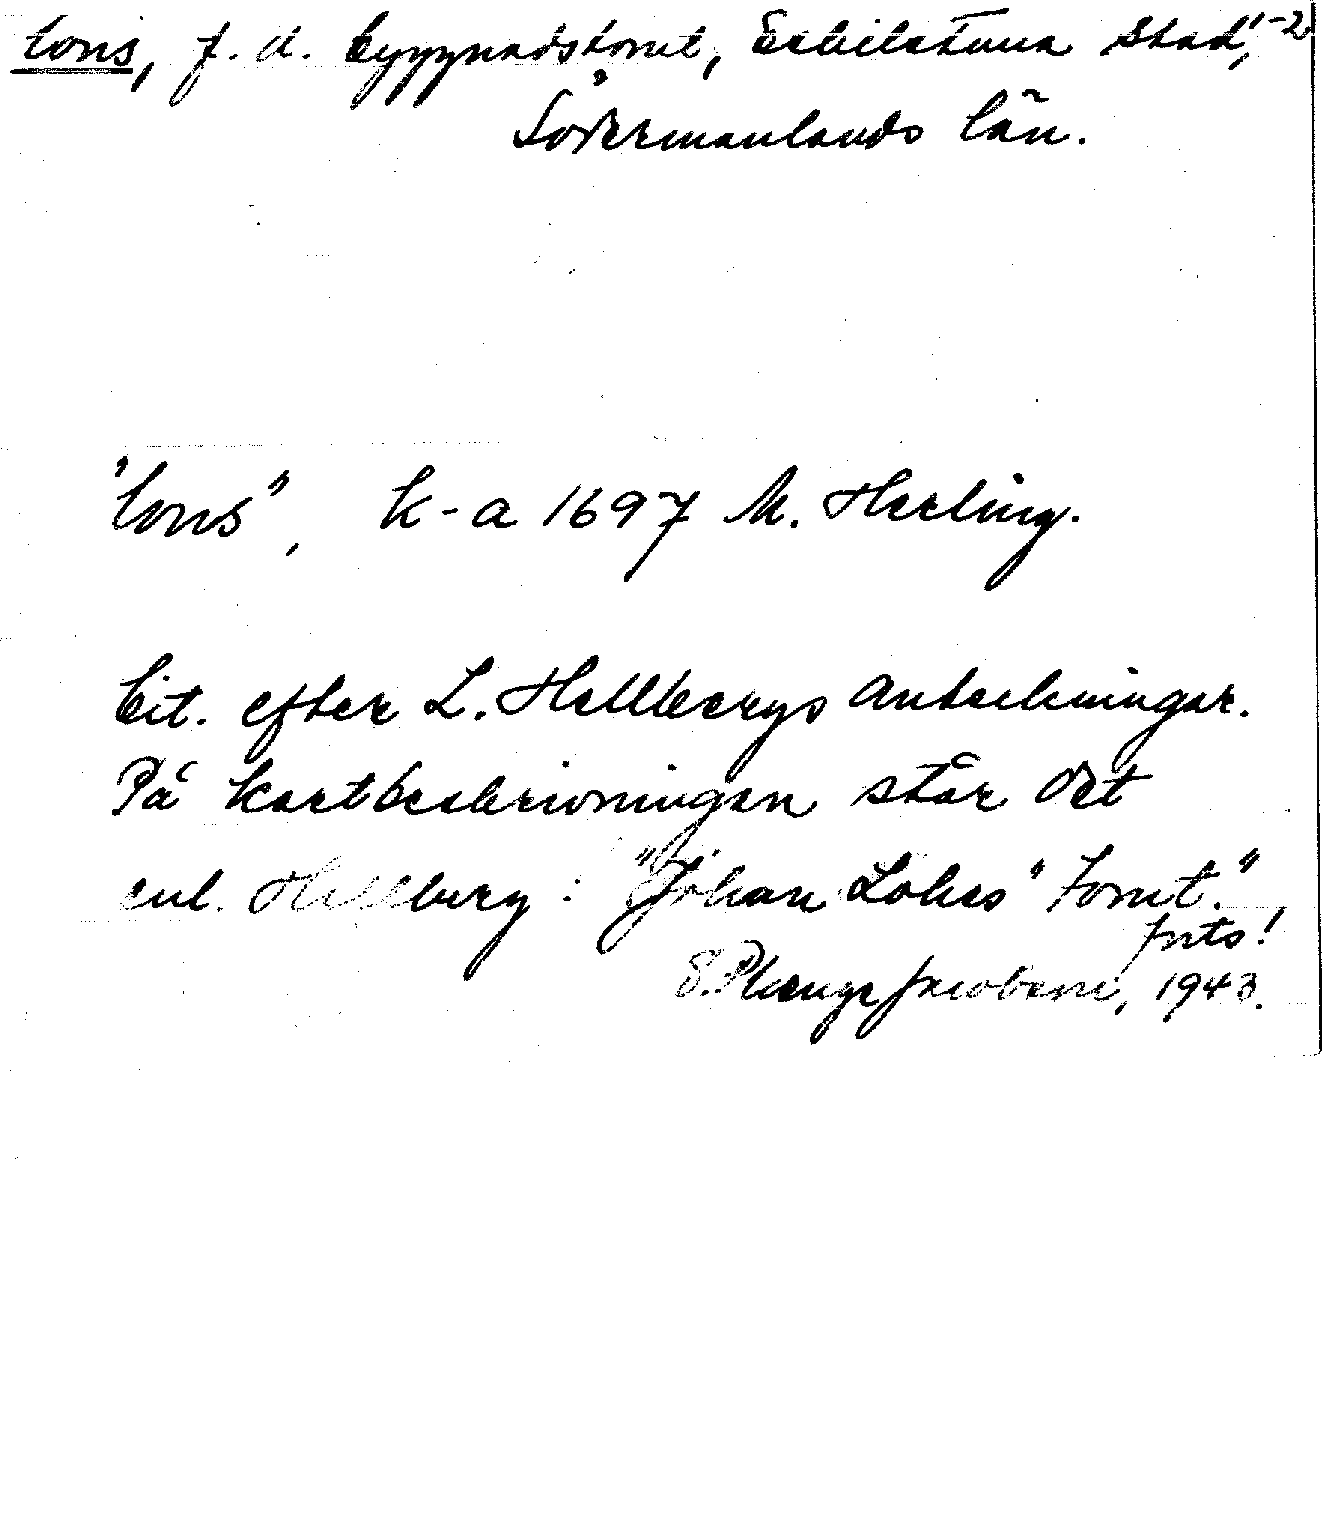 Lons, f. d. byggnadstomt, Eskilstuna stad, 1-2
Södermanlands län.
"Lons", k-a 1697 M. Herling.
Cit. efter L. Hellbergs anteckningar.
På kartbeskrivningen står det
enl. Hellberg: "Johan Lohes" tomt."
S. Plænge Jacobson, 1943.